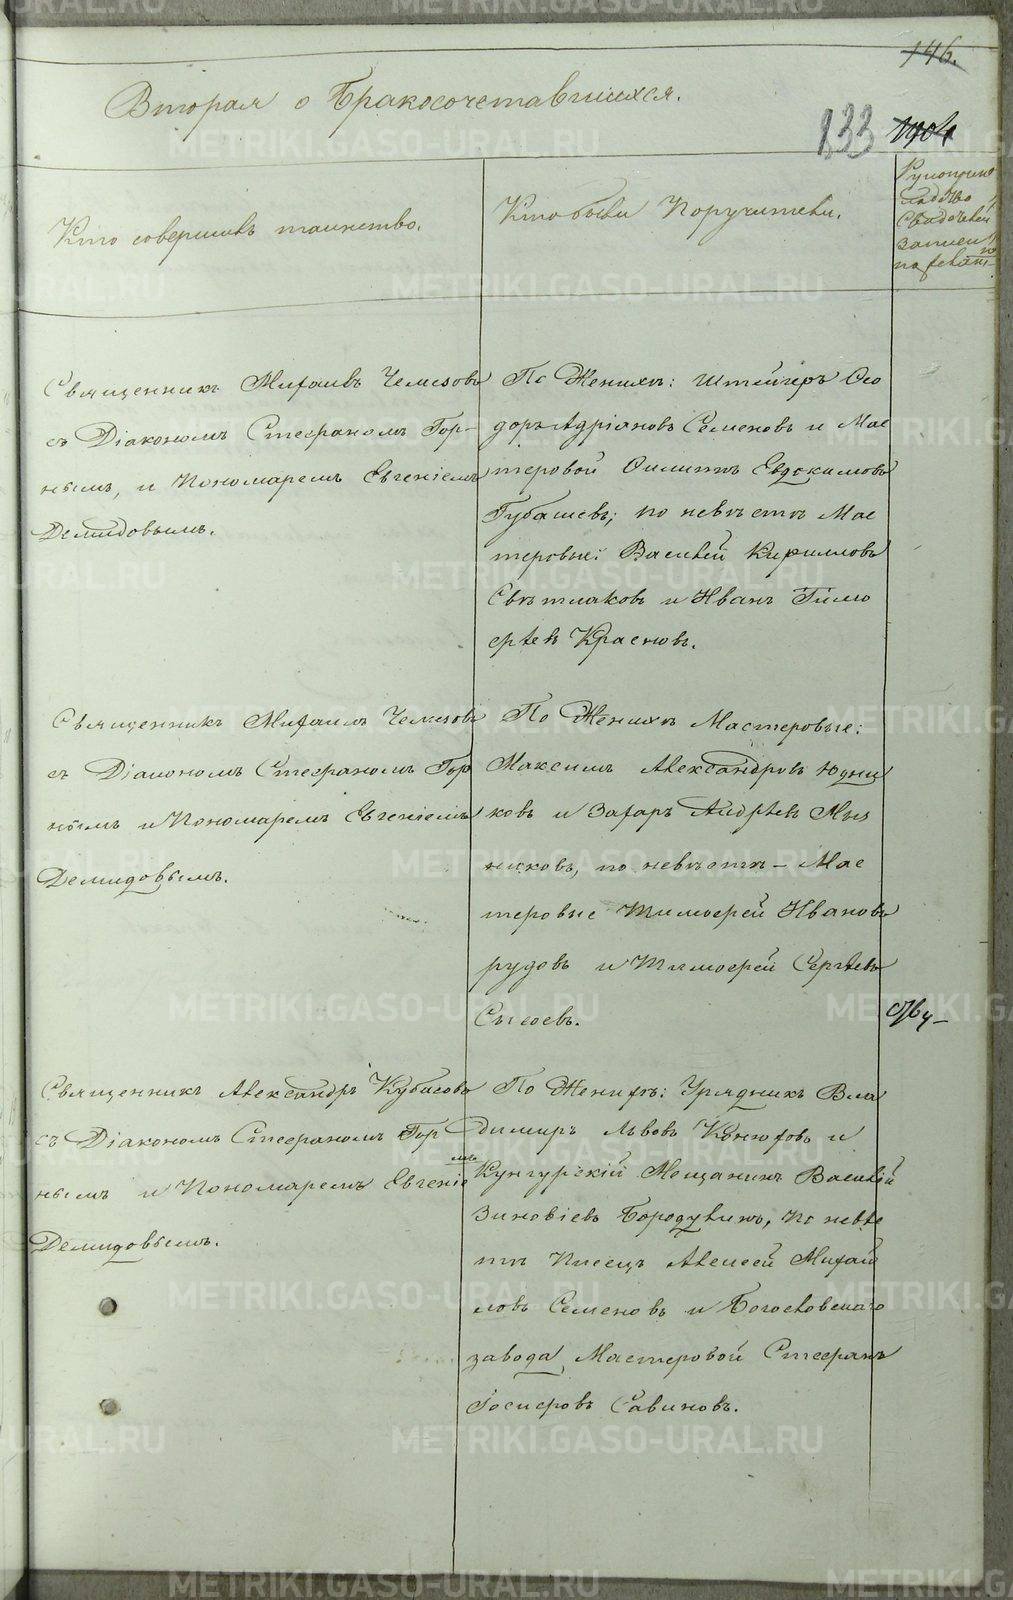 146.
Вторая о Бракосочетавшихся.
133
Кто совершилъ таинство.
Кто были Поручители.
Рукопри
кладство
Свидѣтелей
записи
по желані
Священникъ Михаилъ Чемезовъ
съ Діакономъ Стефаномъ Гор-
нымъ, и Пономаремъ Евгеніемъ
Демидовымъ.
По Женихѣ: Штейгеръ Ѳео
доръ Адріановъ Семеновъ и Мас
теровой Филиппъ Евдокимовъ
Губашевъ; по невѣстѣ Мас
теровые: Василій Кирилловъ
Свѣтлаковъ и Иванъ Тимо
фѣевъ Красновъ.
Священникъ Михаилъ Чемезовъ
съ Діакономъ Стефаномъ Гор
нымъ и Пономаремъ Евгеніемъ
Демидовымъ.
По Женихѣ Мастеровые:
Максимъ Александровъ Юдни
ковъ и Захаръ Андрѣевъ Мыл
никовъ, по невѣстѣ – Мас
теровые Тимофей Ивановъ
рудовъ и Тимофей Сергѣевъ
Сысоевъ.
Священникъ Александръ Кубасовъ
съ Діакономъ Стефаномъ Гор
нымъ и Пономаремъ Евгеніемъ
Демидовымъ.
По Женихѣ: Урядникъ Вла
димиръ Львовъ Конюховъ и
Кунгурскій Мещанинъ Василій
Зиновіевъ Бородулинъ, по невѣс
тѣ Писецъ Алексей Михай
ловъ Семеновъ и Богословскаго
завода Мастеровой Стефанъ
Іосифовъ Савиновъ.
METRIKI.GASO-URAL.RU